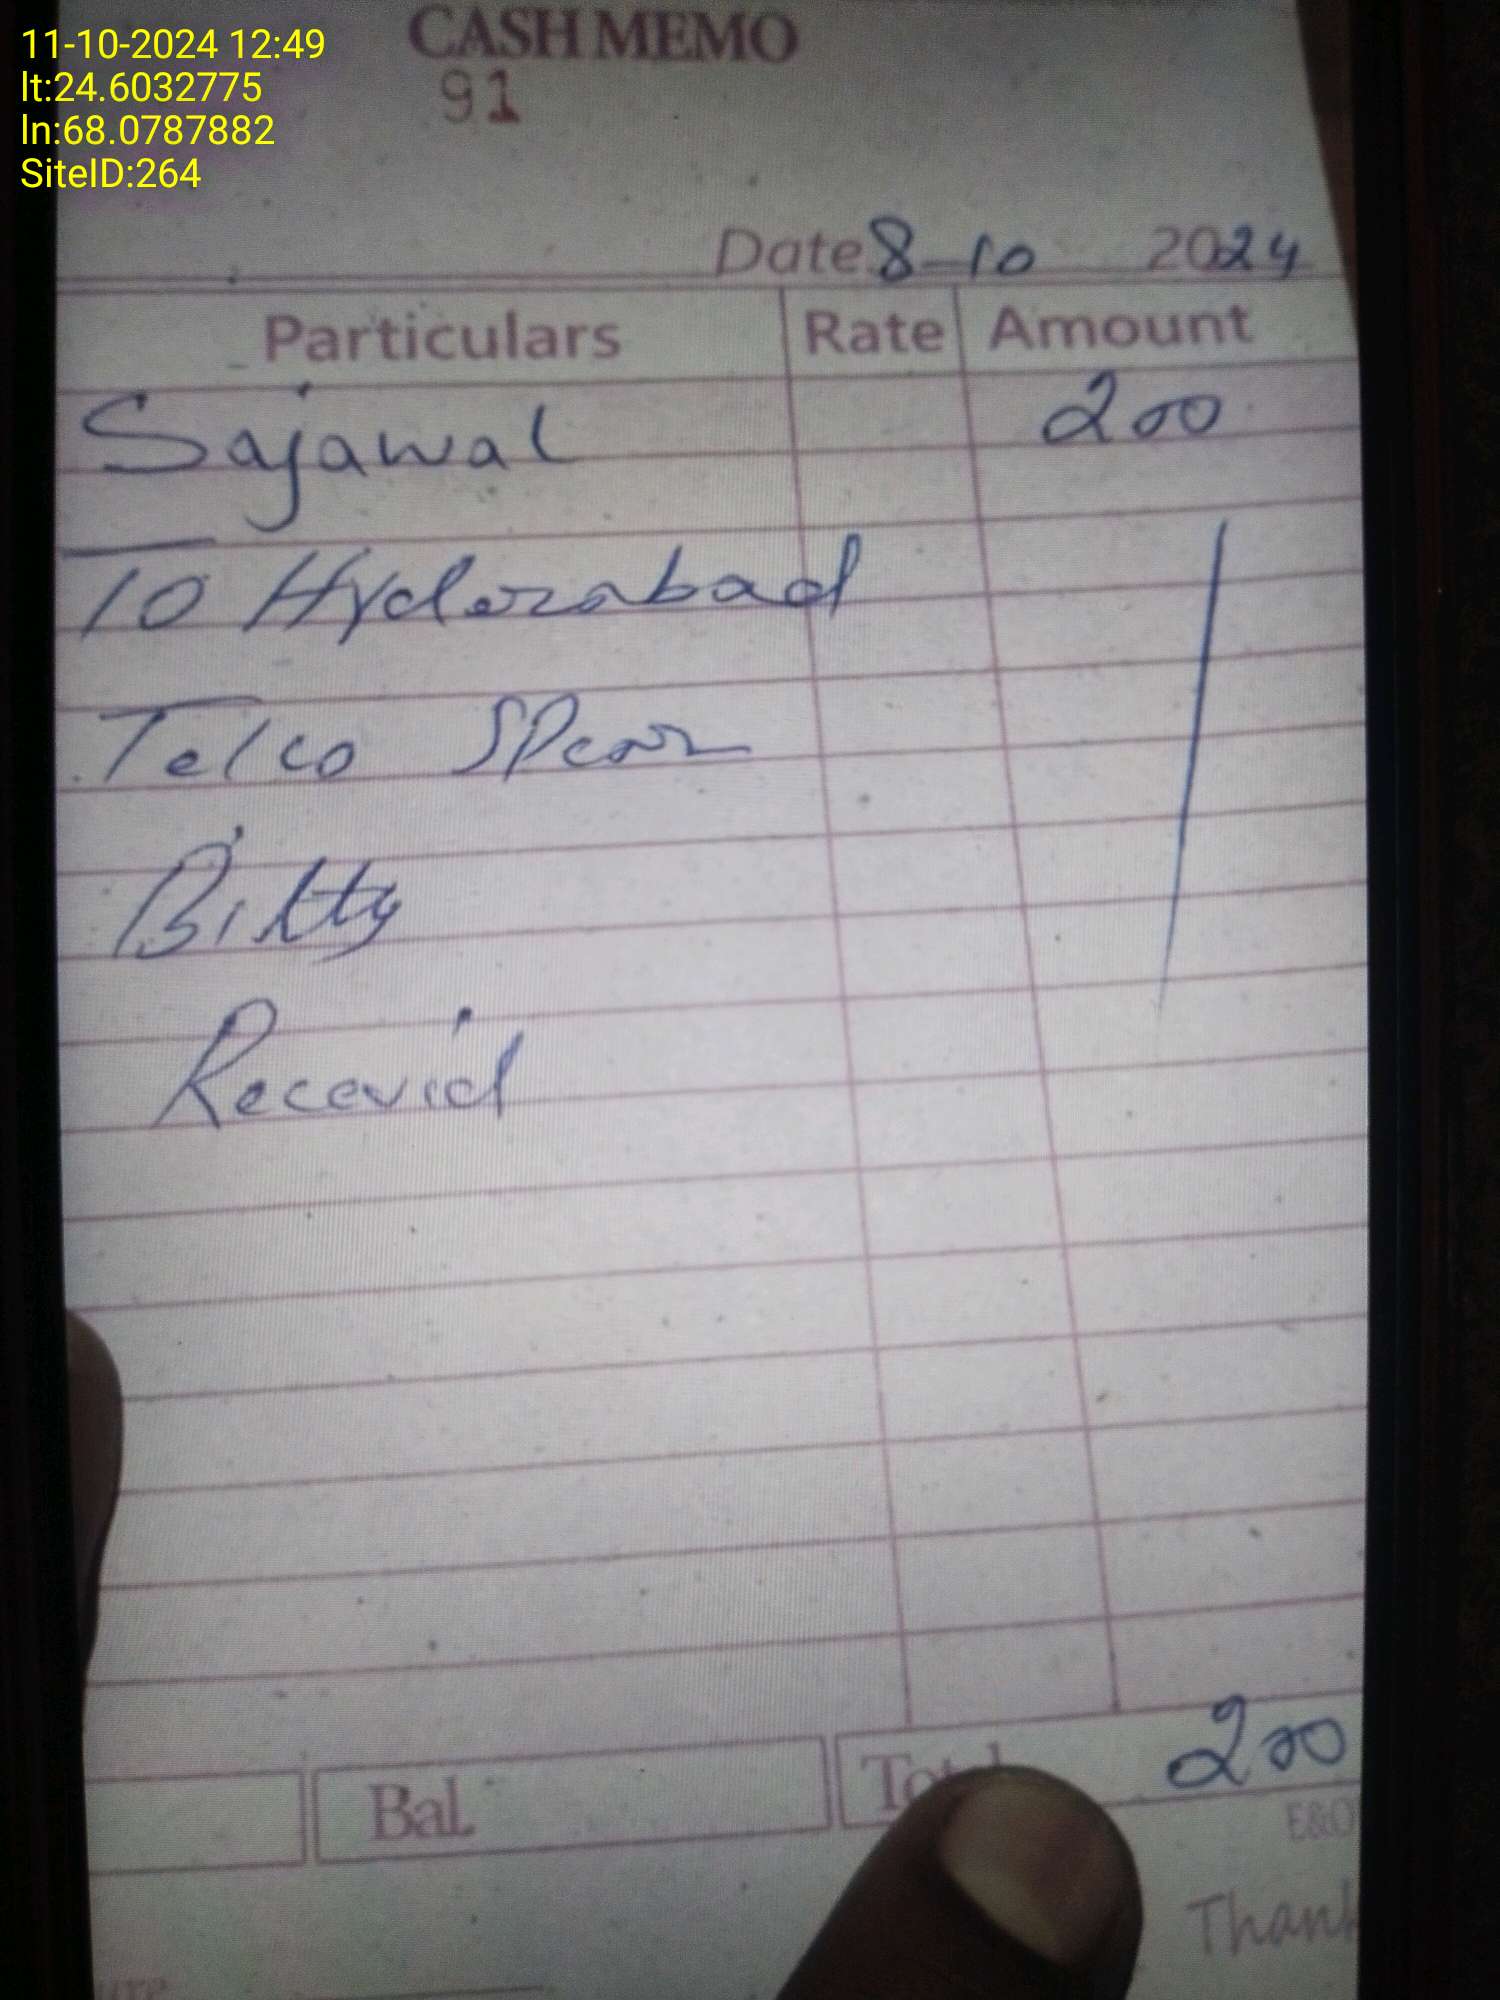 11-10-2024 12:49
lt:24.6032775
ln:68.0787882
SiteID:264
CASH MEMO
91
Date 8-10 2024
Particulars Rate Amount
Sajawal 200
To Hyderabad
Telco
Bilty
Recevid
Bal. Total 200
E&O
Thank